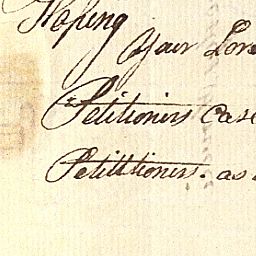 Hoping
Your Lor
Petitioners Case
Petittioners. as